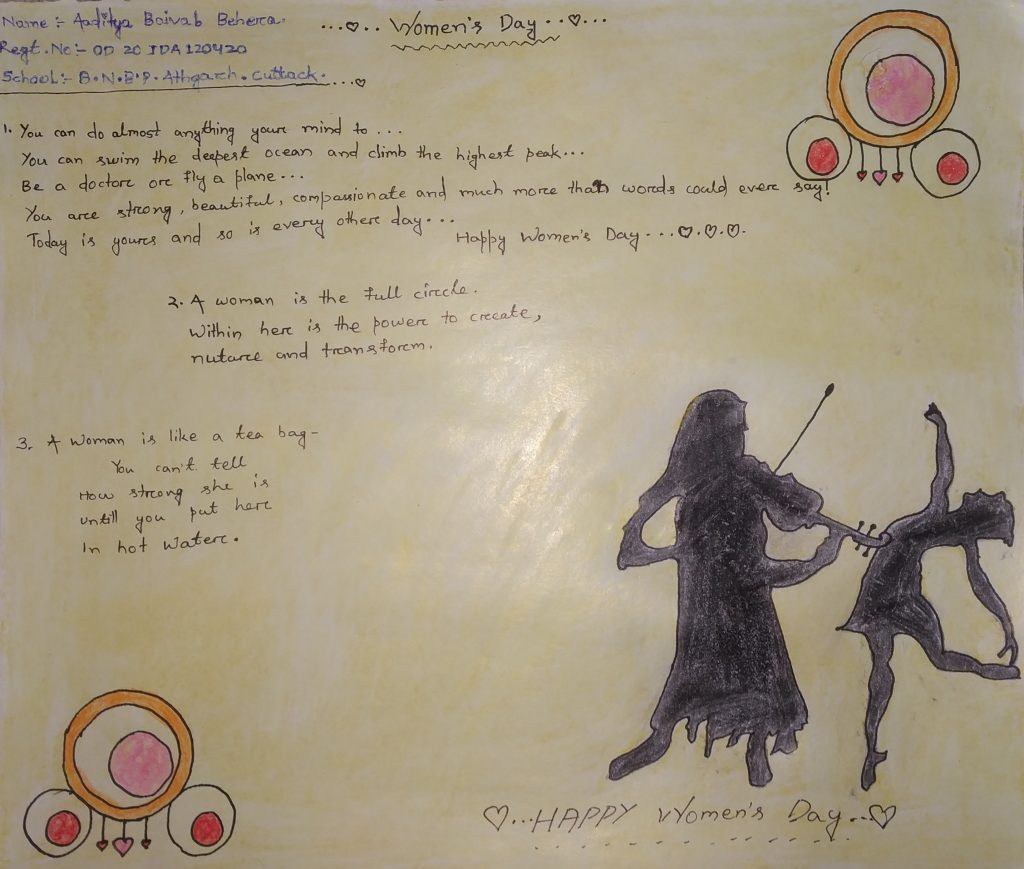 Name :- Aaditya Baivab Behera.
Regt. No :- OD 20 JDA 120420
School :- B.N.B.P. Athgarh. Cuttack....
...♡.. Women's Day ..♡...
1. You can do almost anything youre mind to ...
You can swim the deepest ocean and climb the highest peak...
Be a doctore ore fly a plane...
You are strong, beautiful, compassionate and much more than words could evere say!
Today is youres and so is every othere day...
Happy Women's Day ...♡.♡.♡.
2. A woman is the full circcle.
Within here is the powere to crecate,
nutarce and transform.
3. A Woman is like a tea bag-
You can't tell
How strong she is
untill you put here
In hot Watere.
♡...HAPPY Women's Day...♡